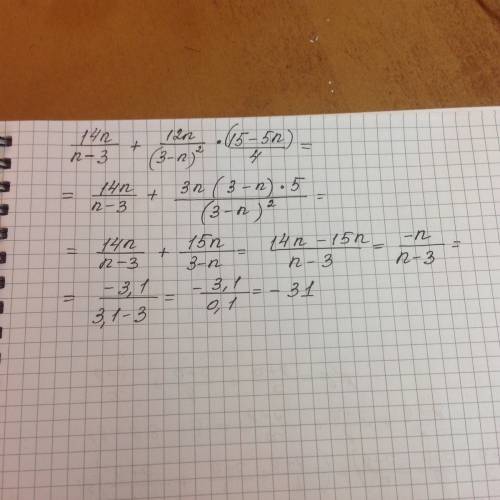 14n/(n-3) + 12n/(3-n)² · (15-5n)/4 =
= 14n/(n-3) + 3n(3-n)·5/(3-n)² =
= 14n/(n-3) + 15n/(3-n) = (14n-15n)/(n-3) = -n/(n-3) =
= -3,1/(3,1-3) = -3,1/0,1 = -31